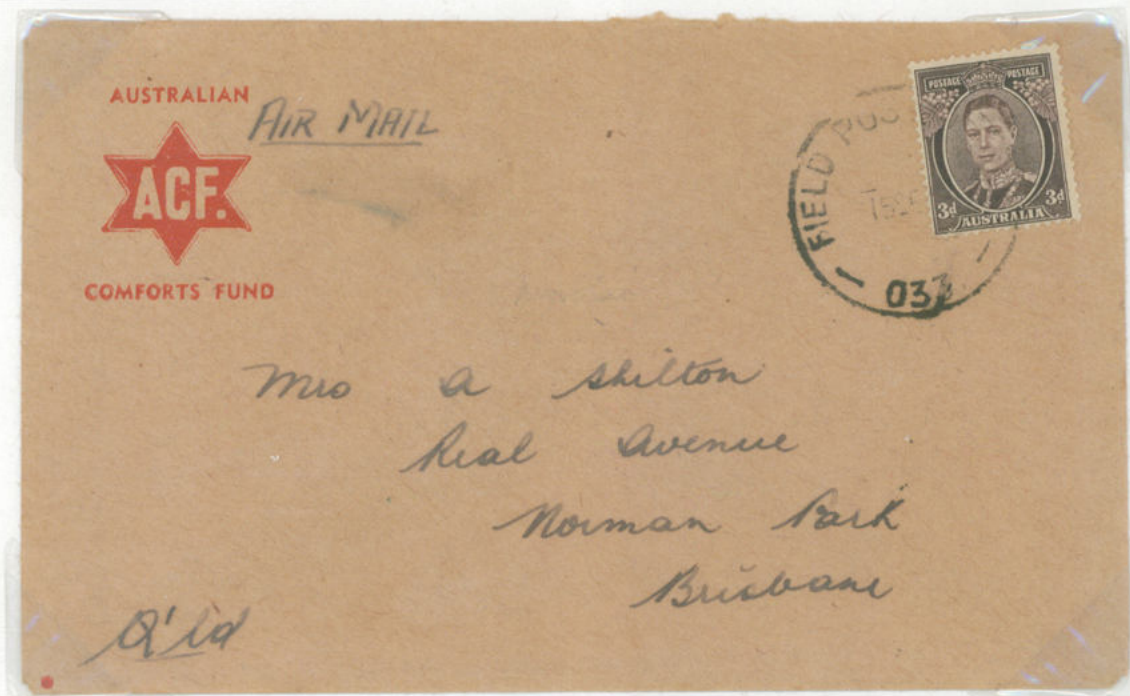 AUSTRALIAN
ACF.
COMFORTS FUND
AIR MAIL
POSTAGE POSTAGE
3d 3d
AUSTRALIA
FIELD
Mrs A Shilton
Real Avenue
Norman Park
Brisbane
Q'ld